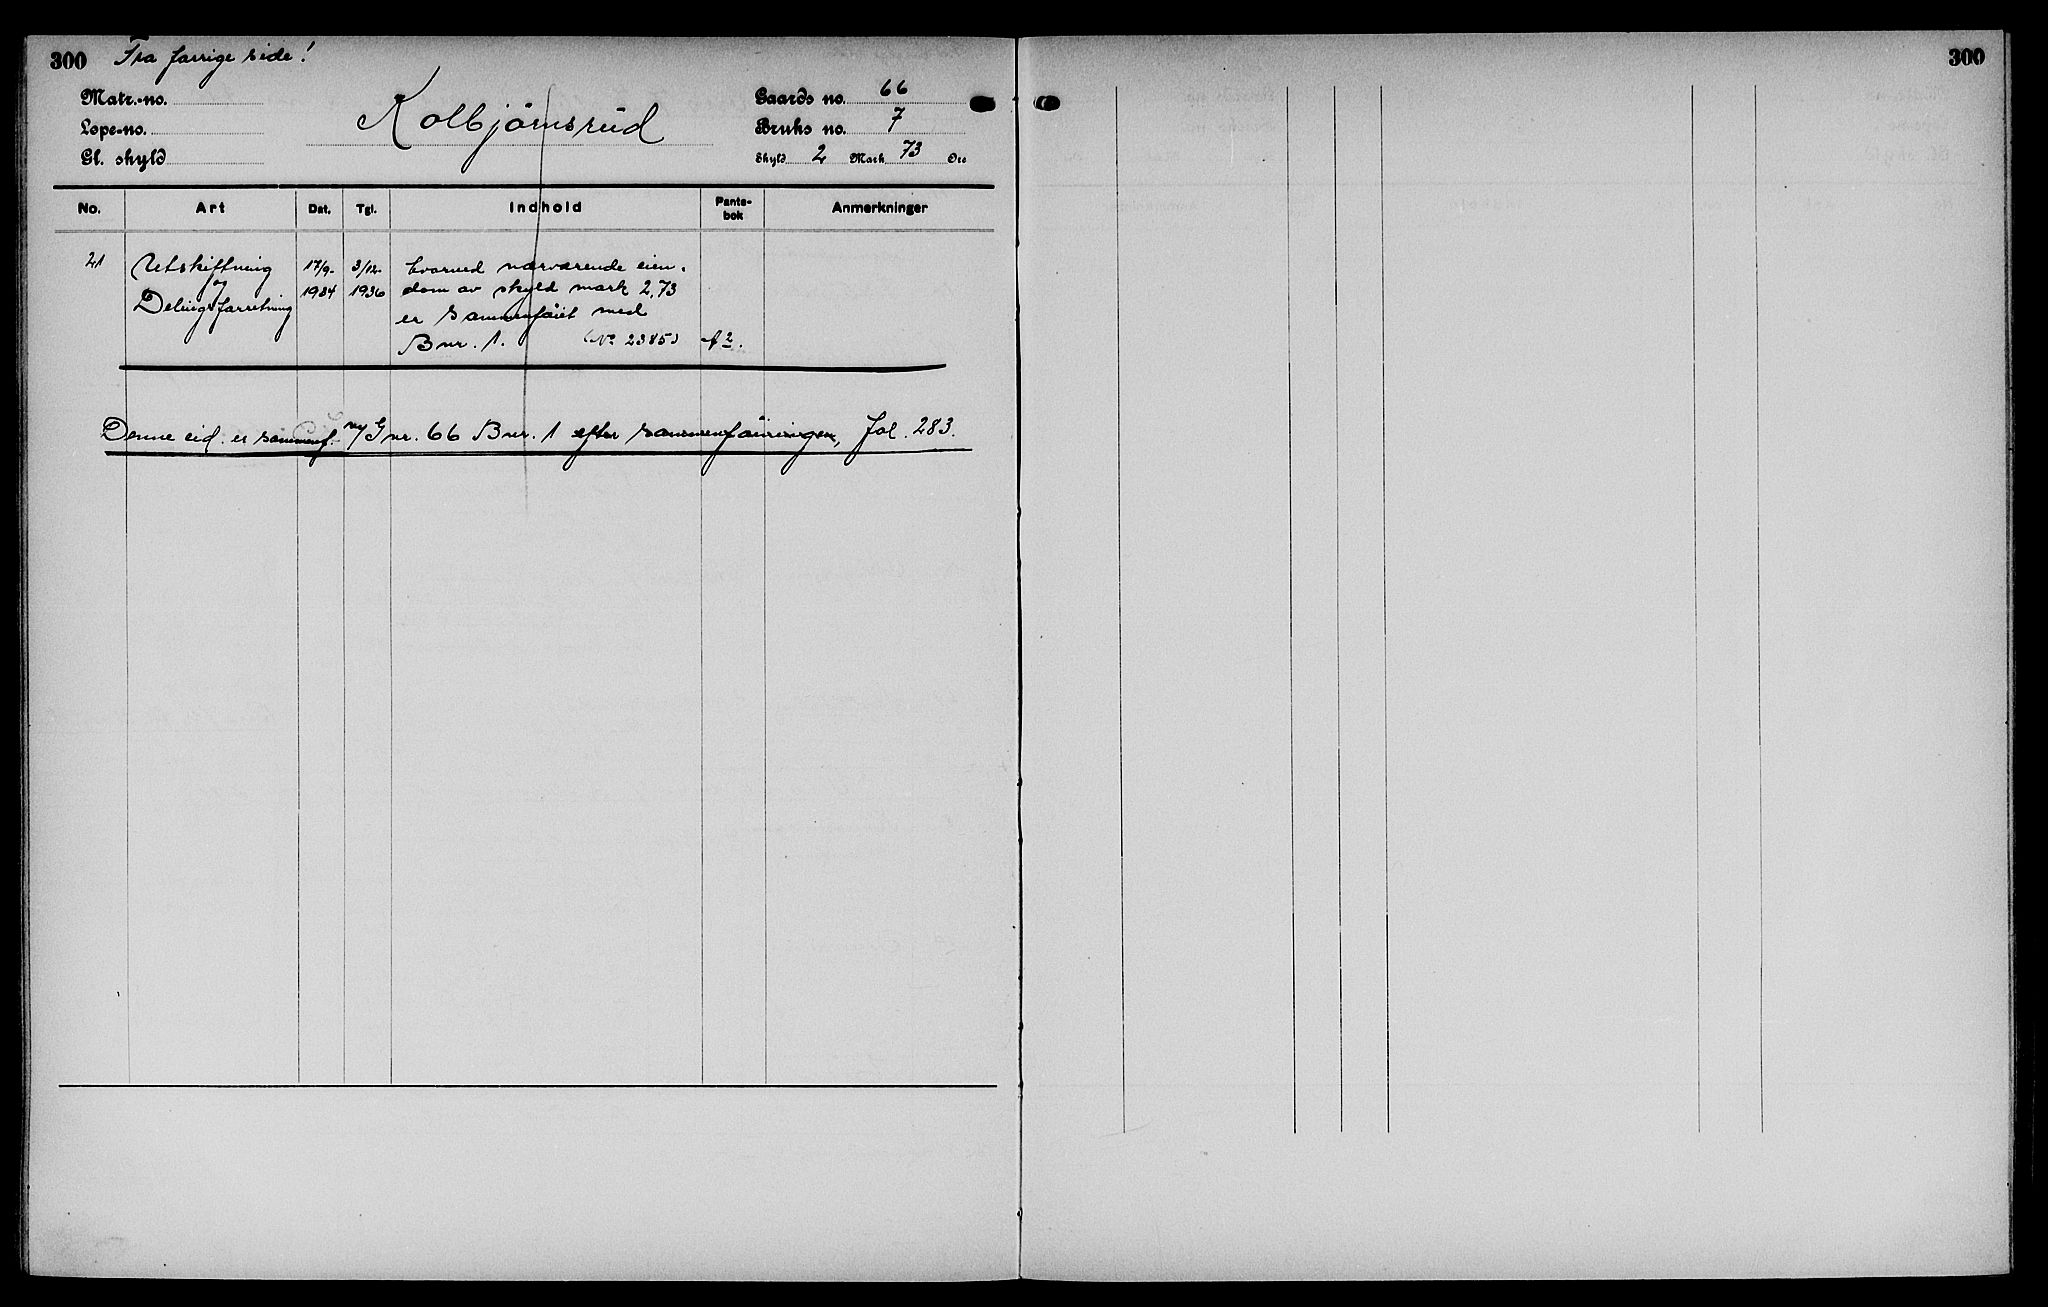 300 Fra forrige side! 300
Matr.-no. Kolbjörnsrud Gaards no. 66
Løpe-no. Bruks no. 7
Gl. skyld Skyld 2 Mark 73 Øre
No. Art Dat. Tgl. Indhold Pante-bok Anmerkninger
21 Utskiftning 17/9- 3/12- hvorved nærværende eien-
og 1934 1936 dom av skyld mark 2,73
Delingsforretning er sammenføiet med
Bnr. 1. (No 2385) A2.
Denne eid. er sammenf. m/ Gnr. 66 Bnr. 1 efter sammenföiningen, fol. 283.